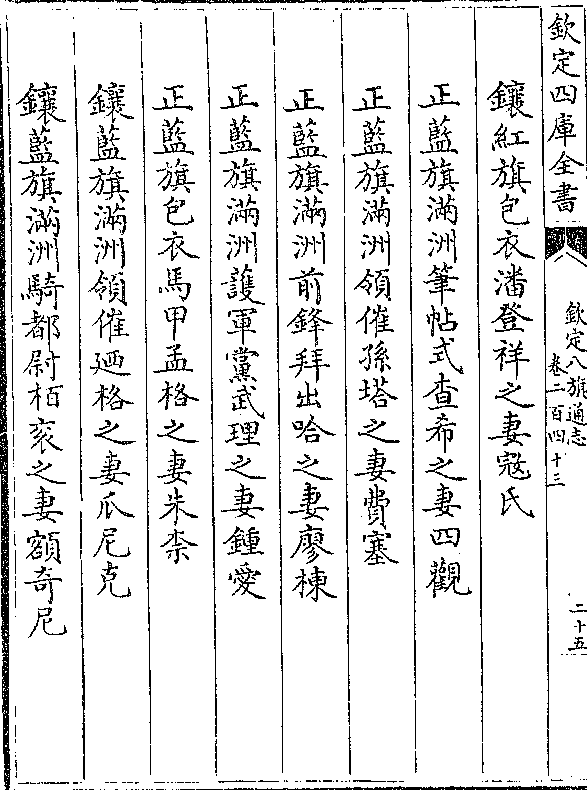 欽定四庫全書
欽定八旗通志
卷二百四十三
二十五
鑲紅旗包衣潘登祥之妻寇氏
正藍旗滿洲筆帖式查希之妻四觀
正藍旗滿洲領催孫塔之妻費塞
正藍旗滿洲前鋒拜出哈之妻廖棟
正藍旗滿洲護軍黨武理之妻鍾愛
正藍旗包衣馬甲孟格之妻朱柰
鑲藍旗滿洲領催廼格之妻瓜尼克
鑲藍旗滿洲騎都尉栢衮之妻額奇尼